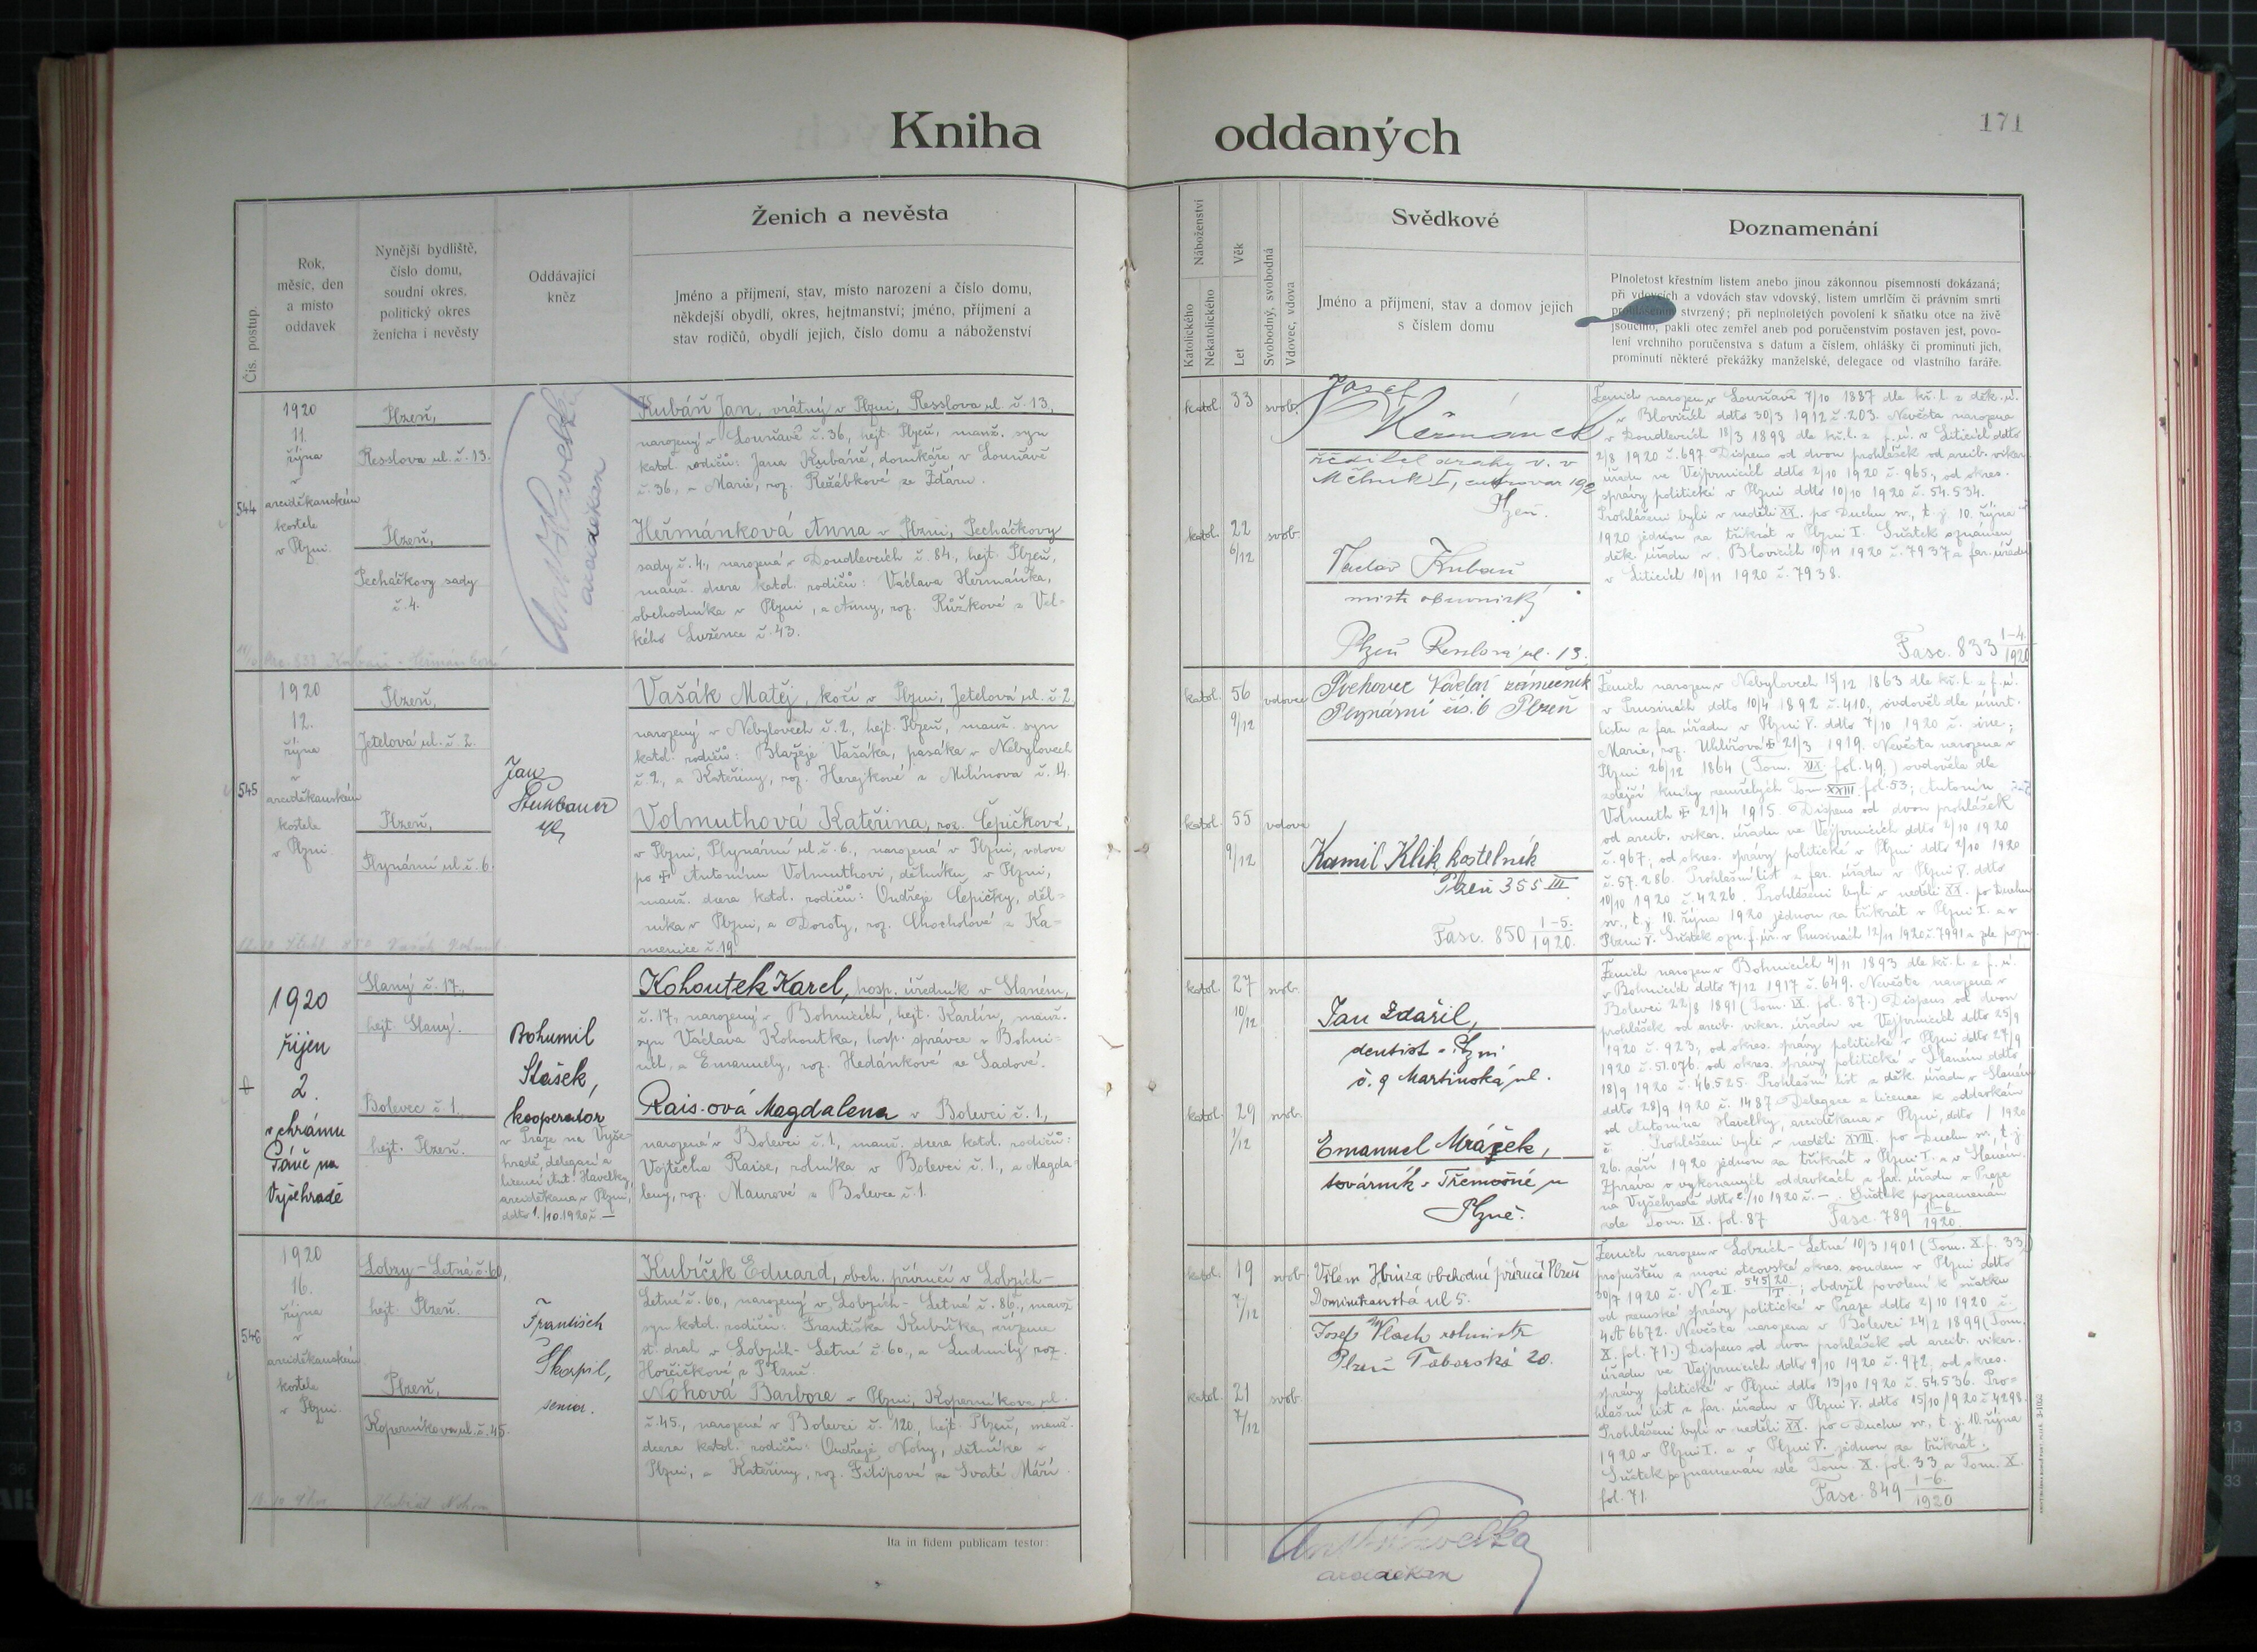 Kniha oddaných
171
Čís. postup.
Rok,
měsíc, den
a místo
oddavek
Nynější bydliště,
číslo domu,
soudní okres,
politický okres
ženicha i nevěsty
Oddávající
kněz
Ženich a nevěsta
Jméno a příjmení, stav, místo narození a číslo domu,
někdejší obydlí, okres, hejtmanství; jméno, příjmení a
stav rodičů, obydlí jejich, číslo domu a náboženství
Náboženství
Katolického
Nekatolického
Věk
Let
Svobodný, svobodná
Vdovec, vdova
Svědkové
Jméno a příjmení, stav a domov jejich
s číslem domu
Poznamenání
Plnoletost křestním listem anebo jinou zákonnou písemností dokázaná;
při vdovcích a vdovách stav vdovský, listem umrlčím či právním smrti
prohlášením stvrzený; při neplnoletých povolení k sňatku otce na živě
jsoucího, pakli otec zemřel aneb pod poručenstvím postaven jest, povo-
lení vrchního poručenstva s datum a číslem, ohlášky či prominutí jich,
prominutí některé překážky manželské, delegace od vlastního faráře.
544
1920
11.
října
v
arciděkanském
kostele
v Plzni.
Plzeň,
Resslova ul. č. 13.
Plzeň,
Pecháčkovy sady
č. 4.
Ant. Havelka
arciděkan
Kubáň Jan, vrátný v Plzni, Resslova ul. č. 13,
narozený v Louňavě č. 36, hejt. Plzeň, manž. syn
katol. rodičů: Jana Kubáně, domkáře v Louňavě
č. 36, a Marie, roz. Řežábkové ze Žďáru.
Heřmánková Anna v Plzni, Pecháčkovy
sady č. 4, narozená v Doudlevcích č. 84, hejt. Plzeň,
manž. dcera katol. rodičů: Václava Heřmánka,
obchodníka v Plzni, a Anny, roz. Růžkové z Vel-
kého Luzence č. 43.
katol. 33 svob.
katol. 22 6/12 svob.
Josef
Heřmánek
ředitel dráhy v. v.
Mělník I, cukrovar 192
Plzeň.
Václav Kubáň
mistr obuvnický
Plzeň Resslova ul. 13.
Ženich narozen v Louňavě 7/10 1887 dle kř. l. z děk. ú.
v Blovicích ddto 30/3 1912 č. 203. Nevěsta narozena
v Doudlevcích 18/3 1898 dle kř. l. z f. ú. v Liticích ddto
2/8 1920 č. 697. Dispens od dvou prohlášek od arcib. vikar.
úřadu ve Vejprnicích ddto 2/10 1920 č. 965., od okres.
správy politické v Plzni ddto 10/10 1920 č. 54.534.
Prohlášeni byli v neděli XX. po Duchu sv., t. j. 10. října
1920 jednou za třikrát v Plzni I. Sňatek oznámen
děk. úřadu v Blovicích 10/11 1920 č. 7937 a far. úřadu
v Liticích 10/11 1920 č. 7938.
Fasc. 833 1-4./1920
545
1920
12.
října
v
arciděkanském
kostele
v Plzni.
Plzeň,
Jetelová ul. č. 2.
Plzeň,
Plynární ul. č. 6.
Jan
Vašák Matěj, kočí v Plzni, Jetelová ul. č. 2,
narozený v Nebylovech č. 2, hejt. Plzeň, manž. syn
katol. rodičů: Blažeje Vašáka, pasáka v Nebylovech
č. 2, a Kateřiny, roz. Herejkové z Milínova č. 14.
Volmuthová Kateřina, roz. Čepičková,
v Plzni, Plynární ul. č. 6., narozená v Plzni, vdova
po ✝ Antonínu Volmuthovi, dělníku v Plzni,
manž. dcera katol. rodičů: Ondřeje Čepičky, děl-
níka v Plzni, a Doroty, roz. Chocholové z Ka-
menice č. 19
katol. 56 9/12 vdovec
katol. 55 9/12 vdova
Václav zámečník
Plynární čís. 6 Plzeň
Kamil Klik, kostelník
Plzeň 355 III
Fasc. 850 1-5./1920.
Ženich narozen v Nebylovech 15/12 1863 dle kř. l. z f. ú.
v Prusinách ddto 10/4 1892 č. 410., ovdověl dle úmrt.
listu z far. úřadu v Plzni V. ddto 7/10 1920 č. sine;
Marie, roz. Uhlířová ✝ 21/3 1919. Nevěsta narozena v
Plzni 26/12 1864 (Tom. XIX. fol. 49.) ovdověla dle
zdejší knihy zemřelých Tom XXIII. fol. 53; Antonín
Volmuth ✝ 21/4 1915. Dispens od dvou prohlášek
od arcib. vikar. úřadu ve Vejprnicích ddto 2/10 1920
č. 967; od okres. správy politické v Plzni ddto 2/10 1920
č. 57.286. Prohlašní list z far. úřadu v Plzni V. ddto
10/10 1920 č. 4226. Prohlášeni byli v neděli XX. po Duchu
sv., t. j. 10. října 1920 jednou za třikrát v Plzni I. a v
Plzni V. Sňatek ozn. f. úř. v Prusinách 12/11 1920 č. 7991 a zde pozn.
1920
říjen
2.
v chrámu
Páně na
Vyšehradě
Slaný č. 17.,
hejt. Slaný.
Bolevec č. 1.,
hejt. Plzeň.
Bohumil
Stašek,
kooperátor
v Praze na Vyše-
hradě, delegací a
licencí Ant. Havelky,
arciděkana v Plzni,
ddto 1./10. 1920 č. —
Kohoutek Karel, hosp. úředník v Slaném,
č. 17, narozený v Bohnicích, hejt. Karlín, manž.
syn Václava Kohoutka, hosp. správce v Bohni-
cích, a Emanuely, roz. Hedánkové ze Sadové.
Rais-ová Magdalena v Bolevci č. 1.,
narozená v Bolevci č. 1, manž. dcera katol. rodičů:
Vojtěcha Raise, rolníka v Bolevci č. 1., a Magda-
leny, roz. Maurové z Bolevce č. 1.
katol. 27 10/12 svob.
katol. 29 1/12 svob.
Jan Zdařil,
dentist v Plzni
č. 9 Martinská ul.
Emanuel Mráček,
továrník v Třemošné u
Plzně.
Ženich narozen v Bohnicích 4/11 1893 dle kř. l. z f. ú.
v Bohnicích ddto 7/12 1917 č. 649. Nevěsta narozena v
Bolevci 22/8 1891 (Tom. IX. fol. 87.) Dispens od dvou
prohlášek od arcib. vikar. úřadu ve Vejprnicích ddto 25/9
1920 č. 923, od okres. správy politické v Plzni ddto 27/9
1920 č. 51.076. od okres. správy politické v Slaném ddto
18/9 1920 č. 46.525. Prohlašní list z děk. úřadu v Slaném
ddto 28/9 1920 č. 1487. Delegace a licence k oddavkám
od Antonína Havelky, arciděkana v Plzni, ddto / 1920
č. Prohlášeni byli v neděli XVIII. po Duchu sv., t. j.
26. září 1920 jednou za třikrát v Plzni I. a v Slaném.
Zpráva o vykonaných oddavkách z far. úřadu v Praze
na Vyšehradě ddto 2/10 1920 č. —. Sňatek poznamenán
zde Tom. IX. fol. 87 Fasc. 789 1-6./1920.
546
1920
16.
října
v
arciděkanském
kostele
v Plzni.
Lobzy-Letná č. 60,
hejt. Plzeň.
Plzeň,
Koperníkova ul. č. 45.
František
Škorpil,
senior.
Kubíček Eduard, obch. příručí v Lobzích-
Letné č. 60, narozený v Lobzích-Letné č. 86., manž.
syn katol. rodičů: Františka Kubíčka, zřízence
st. drah v Lobzích-Letné č. 60, a Ludmily roz.
Hořičkové z Plzně.
Nohová Barbora v Plzni, Koperníkova ul.
č. 45., narozená v Bolevci č. 120, hejt. Plzeň, manž.
dcera katol. rodičů: Ondřeje Nohy, dělníka v
Plzni, a Kateřiny, roz. Filipové ze Svaté Máří.
katol. 19 7/12 svob.
katol. 21 7/12 svob.
Vilém obchodní příručí Plzeň
Dominikanská ul 5.
Josef Vlach
Plzeň Táborská 20.
Ženich narozen v Lobzích-Letné 10/3 1901 (Tom. X. f. 33.)
propuštěn z moci otcovské okres. soudem v Plzni ddto
30/7 1920 č. Nc II. 545/20/1; obdržel povolení k sňatku
od zemské správy politické v Praze ddto 2/10 1920 č.
4A 6672. Nevěsta narozena v Bolevci 24/2 1899 (Tom.
X. fol. 71.) Dispens od dvou prohlášek od arcib. vikar.
úřadu ve Vejprnicích ddto 9/10 1920 č. 972, od okres.
správy politické v Plzni ddto 13/10 1920 č. 54.536. Pro-
hlašní list z far. úřadu v Plzni V. ddto 15/10 1920 č. 4298.
Prohlášeni byli v neděli XX. po Duchu sv., t. j. 10. října
1920 v Plzni I. a v Plzni V. jednou za třikrát.
Sňatek poznamenán zde Tom. X. fol. 33 a Tom. X.
fol. 71. Fasc. 849 1-6./1920
Ita in fidem publicam testor:
Ant. Havelka
arciděkan